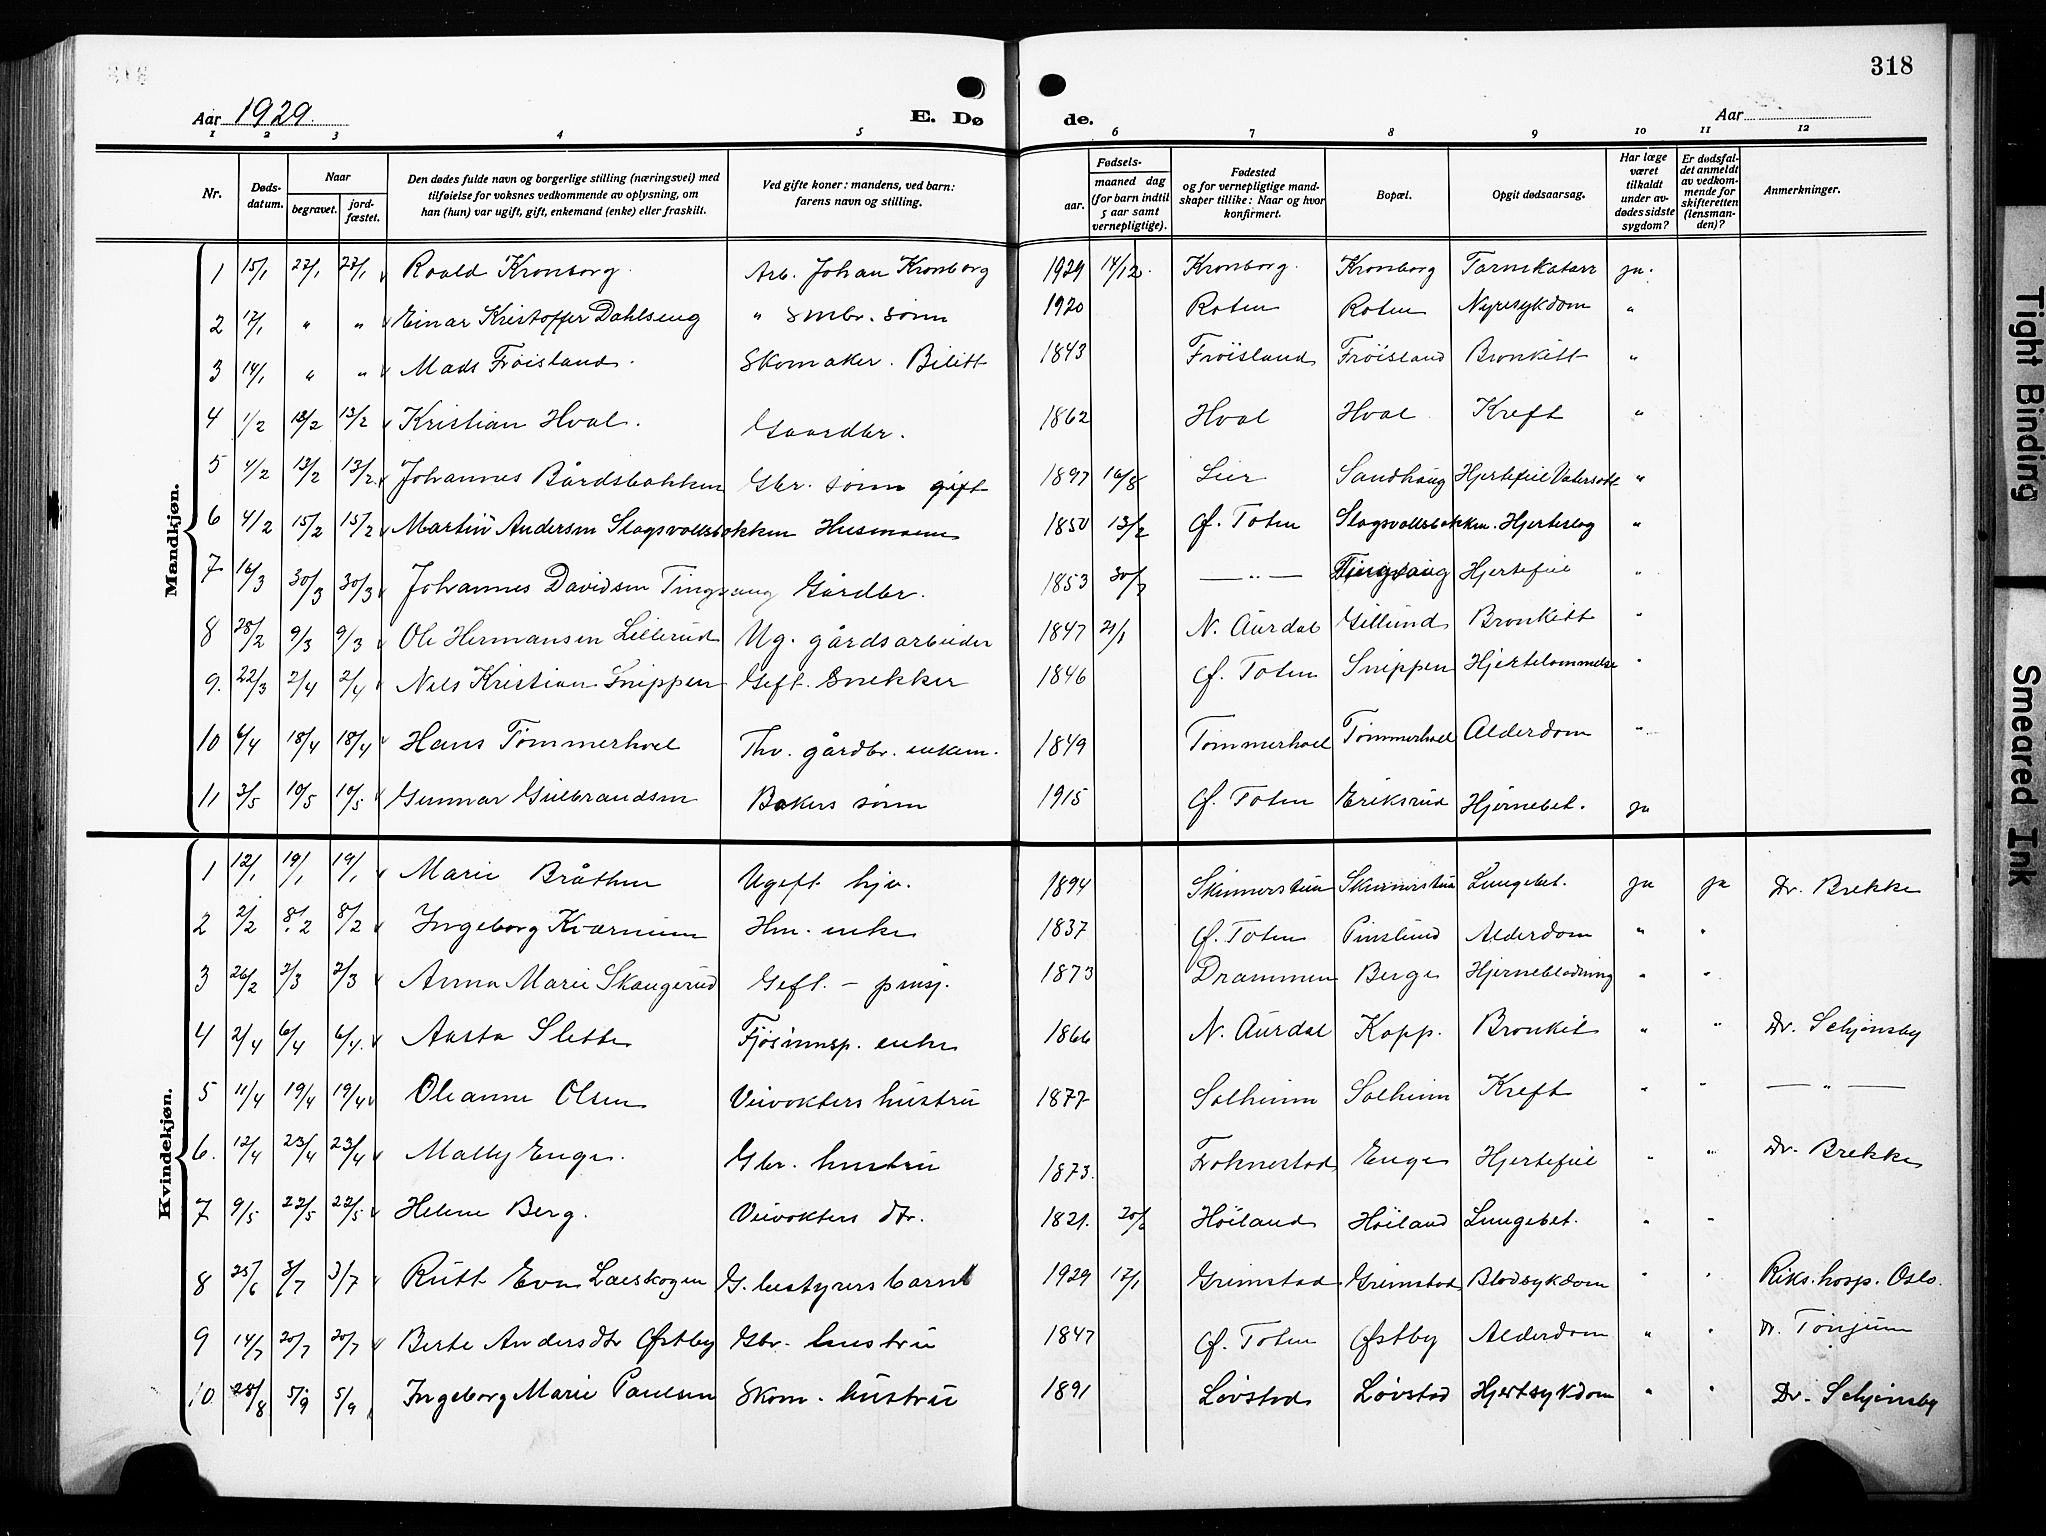 318
Aar 1929. E. Dø de. Aar
1 2 3 4 5 6 7 8 9 10 11 12
Nr. Døds-datum. Naar begravet. jord-fæstet. Den dødes fulde navn og borgerlige stilling (næringsvei) med tilføielse for voksnes vedkommende av oplysning, om han (hun) var ugift, gift, enkemand (enke) eller fraskilt. Ved gifte koner: mandens, ved barn: farens navn og stilling. Fødsels- aar. maaned dag (for barn indtil 5 aar samt vernepligtige). Fødested og for vernepligtige mand-skaper tillike: Naar og hvor konfirmert. Bopæl. Opgit dødsaarsag. Har læge været tilkaldt under av-dødes sidste sygdom? Er dødsfal-det anmeldt av vedkom-mende for skifteretten (lensman-den)? Anmerkninger.
Mandkjøn.
1 15/1 27/1 27/1 Roald Kronborg. Arb. Johan Kronborg 1929 14/12. Kronborg. Kronborg Tarmkatarr ja.
2 17/1 " " Einar Kristoffer Dahlseng " Smbr. sønn 1920 Roten Roten Nyresykdom "
3 14/1 " " Mads Frøisland. Skomaker. Bilitt 1843 Frøisland Frøisland Bronkitt "
4 1/2 13/2 13/2 Kristian Hval. Gaardbr. 1862 Hval Hval Kreft "
5 4/2 13/2 13/2 Johannes Bårdsbakken Gbr. sønn gift 1897 16/8 Lier Sandhaug Hjertefeil Vatersott "
6 4/2 15/2 15/2 Martin Andersen Slagsvollsbakken Husmann 1850 13/2 Ø. Toten Slagsvollsbakken. Hjerteslag "
7 16/3 30/3 30/3 Johannes Davidsen Tingvang Gårdbr. 1853 30/7 — " — Tingvang Hjertefeil "
8 28/2 9/3 9/3 Ole Hermansen Lillerud Ug. gårdsarbeider 1847 21/1 N. Aurdal Gillund Bronkitt "
9. 22/3 2/4 2/4 Nils Kristian Snippen Gift. Snekker 1846 Ø. Toten Snippen Hjertelammelse "
10 6/4 18/4 18/4 Hans Tømmerhol Fhv. gårdbr. enkem. 1849 Tømmerhol Tømmerhol Alderdom "
11 3/5 19/5 19/5 Gunnar Gulbrandsen Bakers sønn 1915 Ø. Toten Eriksrud Hjernebet. ja
Kvindekjøn.
1 12/1 19/1 19/1 Marie Bråthen Ugift hjv. 1894 Skinnerstua Skinnerstua Lungebet. ja ja Dr. Brekke
2 2/2 8/2 8/2 Ingeborg Kværnum Hm. enke 1837 Ø. Toten Pinslund Alderdom " "
3 26/2 2/3 2/3 Anna Marie Skaugerud Gift. – pensj. 1873 Drammen Berge Hjerneblødning " "
4 2/4 6/4 6/4. Aasta Slette Fjøsinnsp. enke 1866 N. Aurdal Kopp. Bronkit " " Dr. Schjønsby
5 11/4 19/4 19/4 Oleanne Olsen Veivokters hustru 1877 Solheim Solheim Kreft " " — " —
6. 12/4 23/4 23/4 Mally Enge. Gbr. hustru 1873. Foknestad Enge Hjertefeil " " Dr. Brekke
7 9/5 22/5 22/5 Helene Berg. Veivokters dtr. 1821. Høiland Høiland Lungebet. " "
8 25/6 3/7 3/7 Rutt Eva Laeskogen G. bestyrers barn 1929 17/1 Grimstad Grimstad Blodsykdom " " Riks.hosp. Oslo.
9 14/7 20/7 20/7 Berte Andersdtr Østby Gbr. hustru 1847 Ø. Toten Østby Alderdom " " Dr. Tønjum
10 28/8 5/9 5/9 Ingeborg Marie Paulsen Skom. hustru 1891 Løvstad Løvstad Hjertsykdom " " Dr. Schjønsby
Tight Binding
Smeared Ink